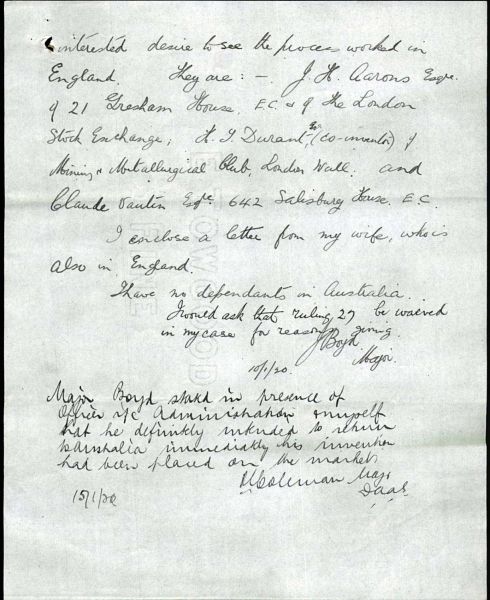 interested desire to see the process worked in
England. They are: – J. H. Aarons Esqre.
of 21 Gresham House. E.C. & of The London
Stock Exchange; H. T. Durant, Esq (co-inventor) of
Mining & Metallurgical Club, London Wall. and
Claude Vautin Esqre 642 Salisbury House. E.C.
I enclose a letter from my wife, who is
also in England.
I have no dependants in Australia.
I would ask that ruling 27 be waived
in my case for reasons giving.
J Boyd
Major.
10/1/20.
Major Boyd stated in presence of
Officer i/c Administration & myself
that he definitely intended to return
to Australia immediately his invention
had been placed on the markets
Coleman Major
DAAG
15/1/20